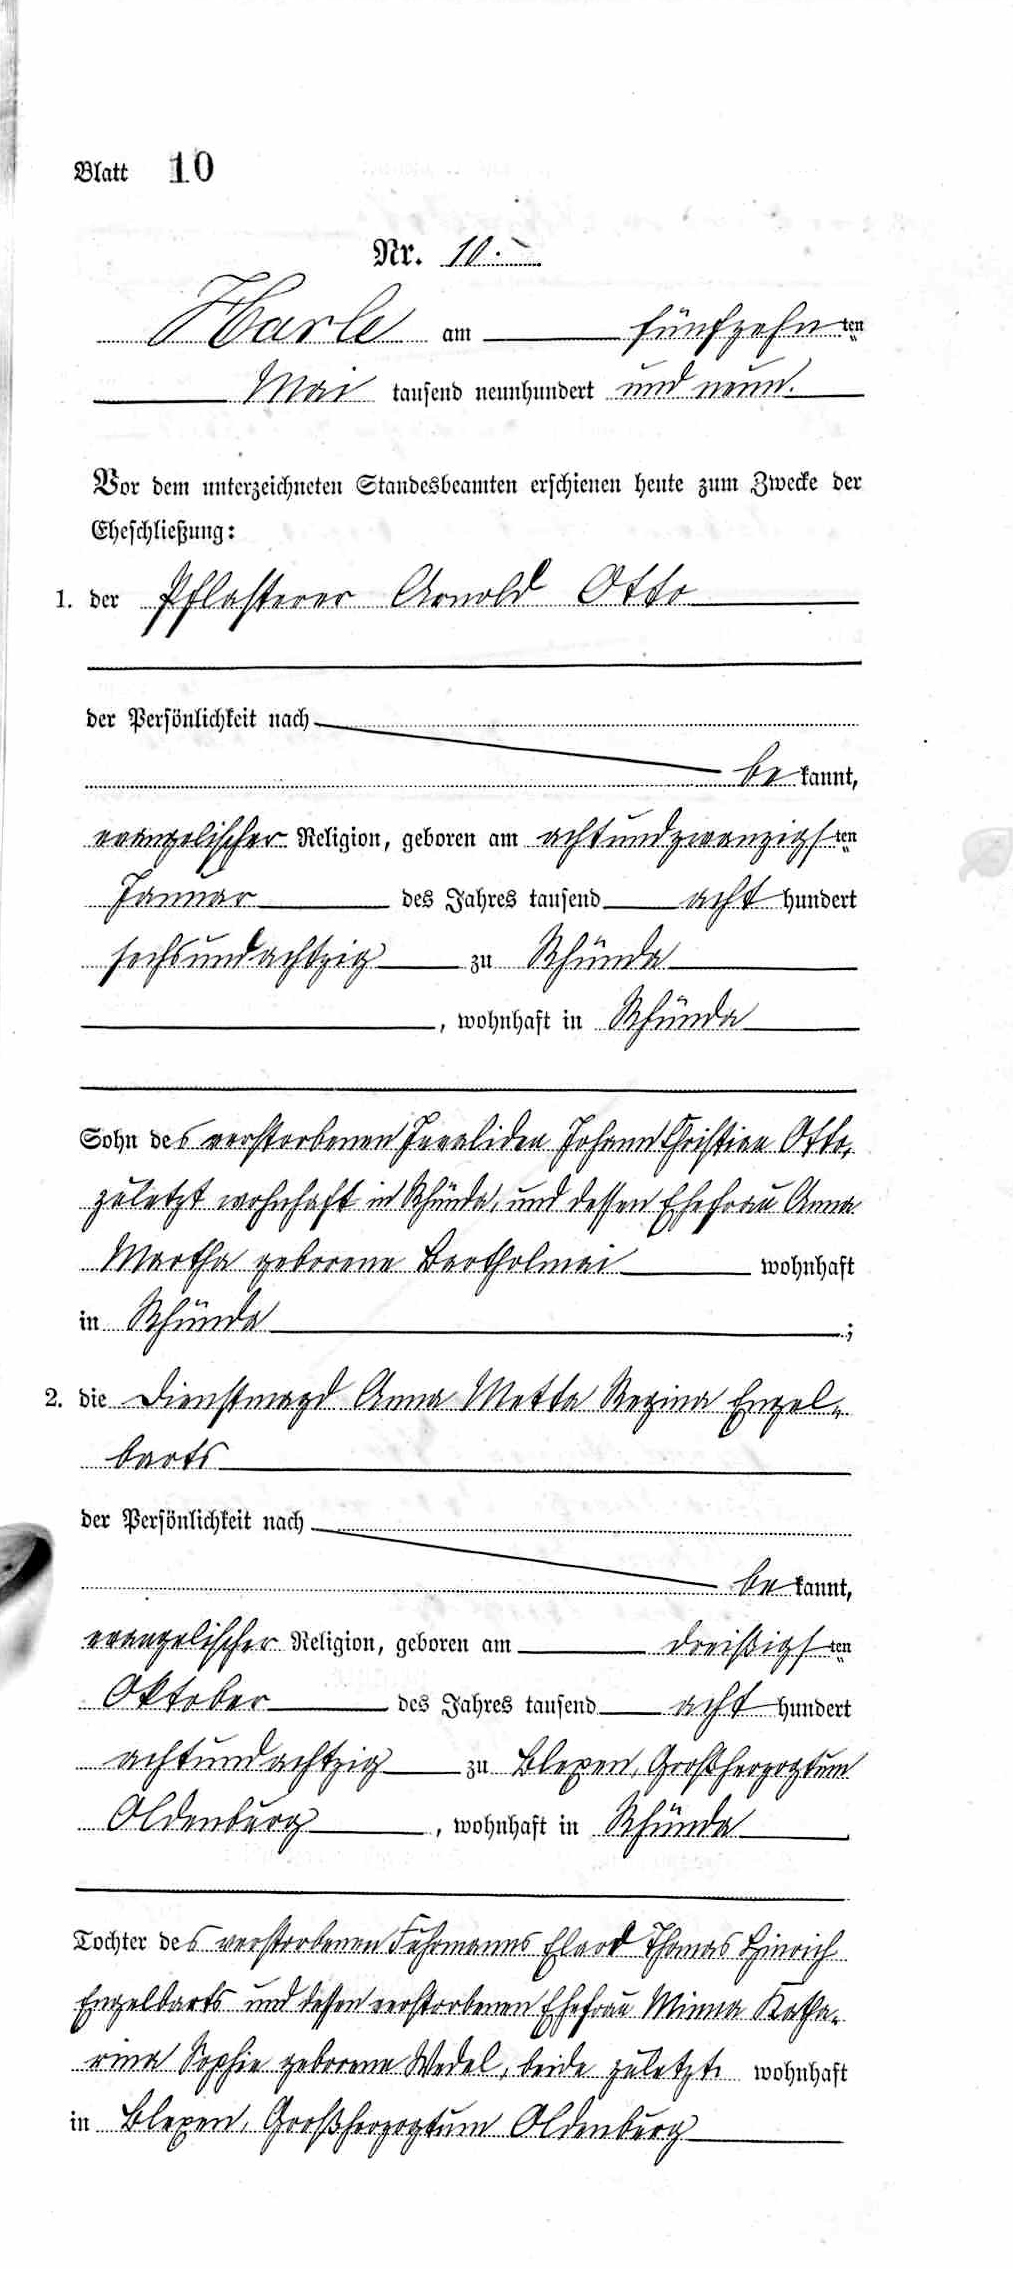 Blatt 10
Nr. 10.
Harle am fünfzehnten
Mai tausend neunhundert und neun.
Vor dem unterzeichneten Standesbeamten erschienen heute zum Zwecke der
Eheschließung:
1. der Pflasterer Arnold Otto
der Persönlichkeit nach
bekannt,
evangelischer Religion, geboren am achtundzwanzigsten
Januar des Jahres tausend acht hundert
sechsundachtzig zu Rhünda
, wohnhaft in Rhünda
Sohn des verstorbenen Invaliden Johann Christian Otto,
zuletzt wohnhaft in Rhünda, und dessen Ehefrau Anna
Martha geborene Bartholmai wohnhaft
in Rhünda ;
2. die Dienstmagd Anna Metta Regina Engel-
barts
der Persönlichkeit nach
bekannt,
evangelischer Religion, geboren am dreißigsten
Oktober des Jahres tausend acht hundert
achtundachtzig zu Blexen, Großherzogtum
Oldenburg , wohnhaft in Rhünda
Tochter des verstorbenen Fuhrmanns Elard Thomas Hinrich
Engelbarts und dessen verstorbenen Ehefrau Minna Katha-
rina Sophie geborene Wedel, beide zuletzt wohnhaft
in Blexen, Großherzogtum Oldenburg